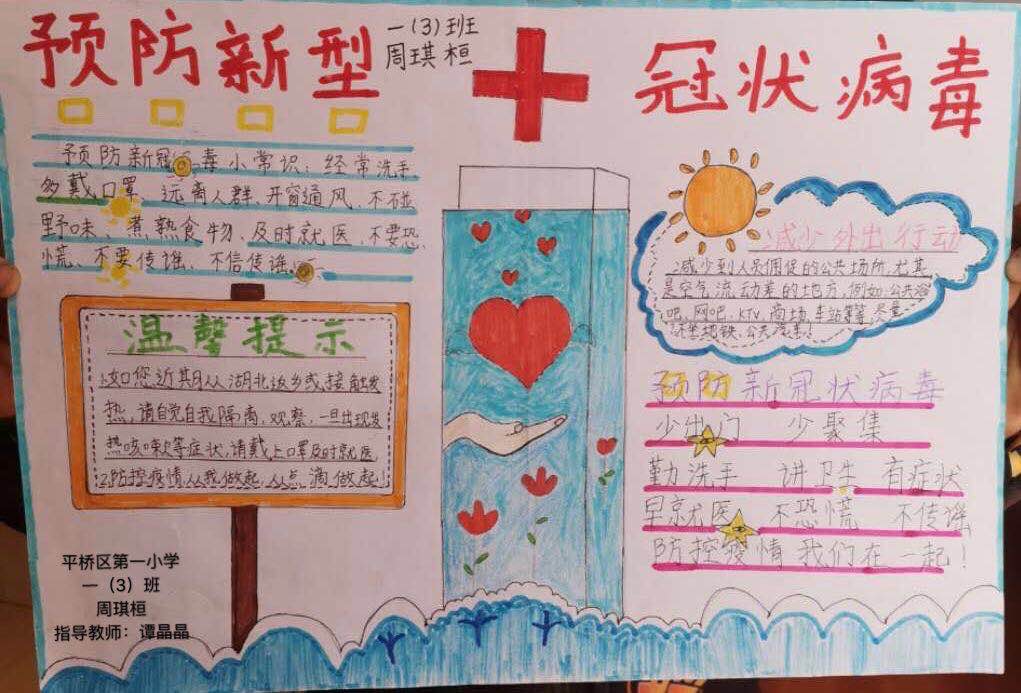 预防新型
冠状病毒
一(3)班
周琪桓
预防新冠 毒小常识：经常洗手、
多戴口罩、远离人群、开窗通风、不碰
野味、煮熟食物、及时就医、不要恐
慌、不要传谣、不信传谣。
温馨提示
1.如您近期从湖北返乡或接触发
热，请自觉自我隔离、观察，一旦出现发
热咳嗽等症状，请戴上口罩及时就医
2.防控疫情从我做起，从点滴做起！
减少外出行动
减少到人员 的公共场所，尤其
是空气流动差的地方，例如：公共浴
吧、网吧、KTV、商场、车站等等，尽量
不坐地铁、公共汽车！
预防新冠状病毒
少出门 少聚集
勤洗手 讲卫生 有症状
早就医 不恐慌 不传谣
防控疫情 我们在一起！
平桥区第一小学
一（3）班
周琪桓
指导教师：谭晶晶